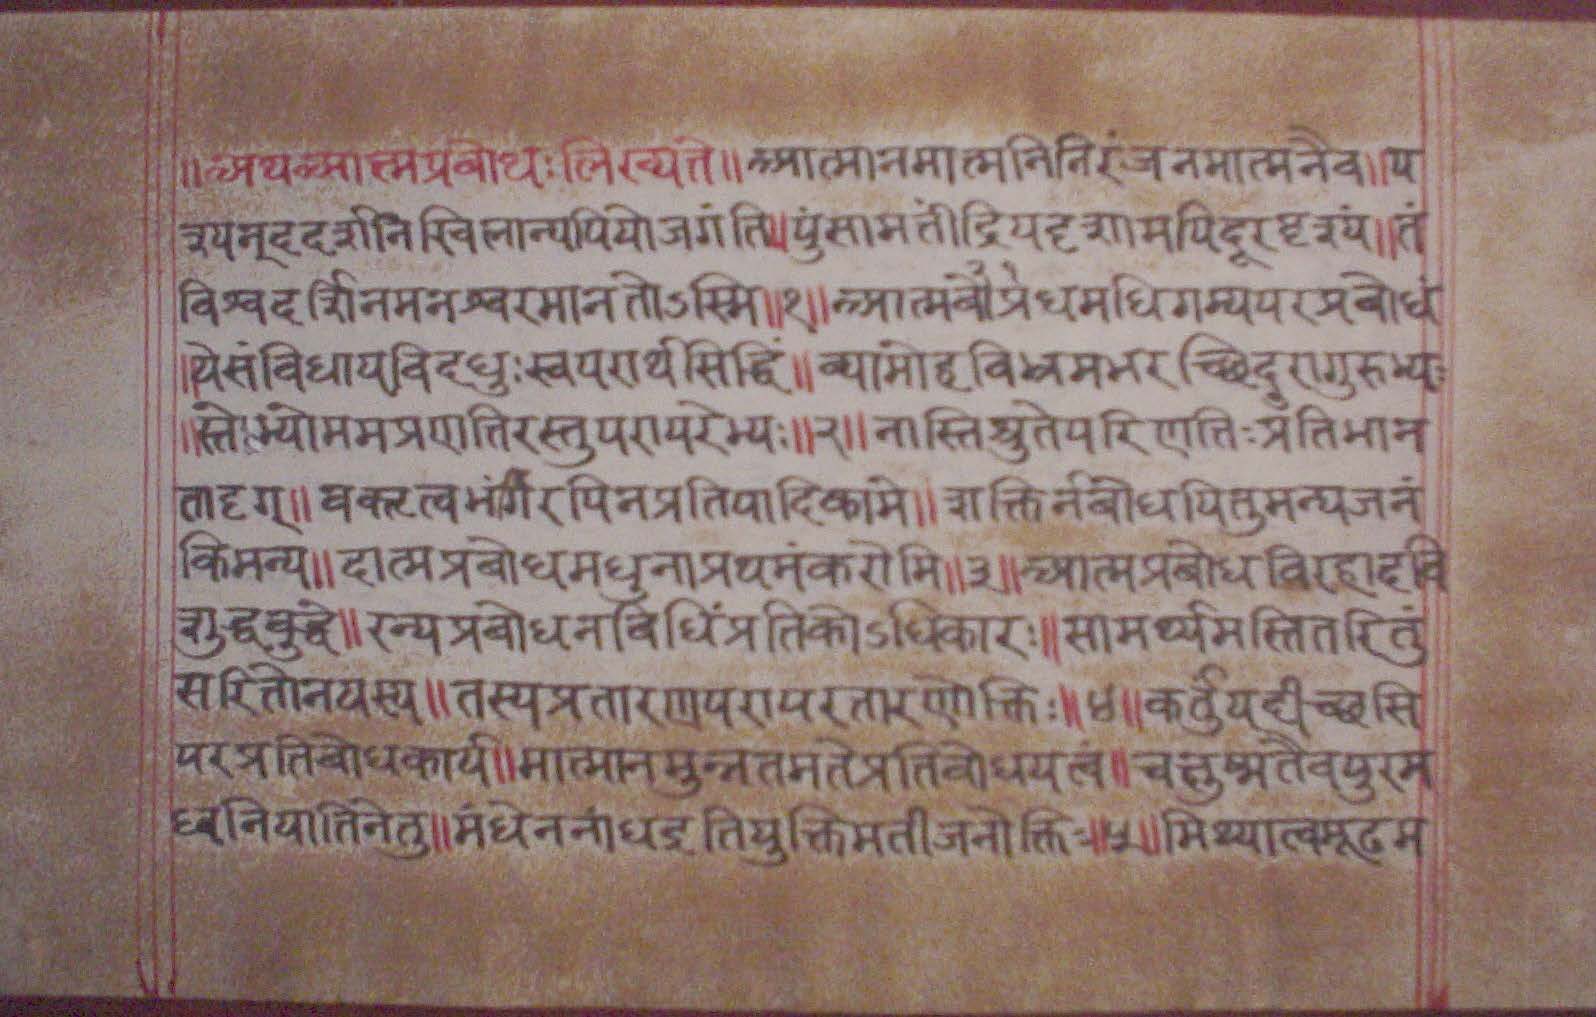 ॥अथआत्मप्रबोधःलिख्यते॥आत्मानमात्मनिनिरंजनमात्मनैव॥प
श्यन्ददर्शनिखिलान्यपियोजगंति॥पुंसामतींद्रियदृशामपिदूरदृश्यं॥तं
विश्वदर्शिनमनश्वरमानतोऽस्मि॥१॥आत्मप्रबोधमधिगम्यपरप्रबोधं
।येसंविधायविदधुःस्वपरार्थसिद्धिं॥व्यामोहविभ्रमभरच्छिदुरागुरुभ्यः
॥स्तेभ्योममप्रणतिरस्तुपरापरेभ्यः॥२॥नास्तिश्रुतेपरिणतिःप्रतिभान
तादृग्॥वक्तृत्वभंगिरपिनप्रतिपादिकामे॥शक्तिर्नबोधयितुमन्यजनं
किमन्य॥दात्मप्रबोधमधुनाप्रथमंकरोमि॥३॥आत्मप्रबोधविरहादवि
शुद्धबुद्धे॥रन्यप्रबोधनविधिंप्रतिकोऽधिकारः॥सामर्थ्यमस्तितरितुं
सरितोनयस्य॥तस्यप्रतारणपरापरतारणोक्तिः॥४॥कर्तुंयदीच्छसि
परप्रतिबोधकार्य॥मात्मानमुन्नतमतेप्रतिबोधयत्वं॥चक्षुष्मतैवपुरम
ध्वनियातिनेतु॥मंधेननांधइतियुक्तिमतीजनोक्तिः॥५॥मिथ्यात्वमूढम